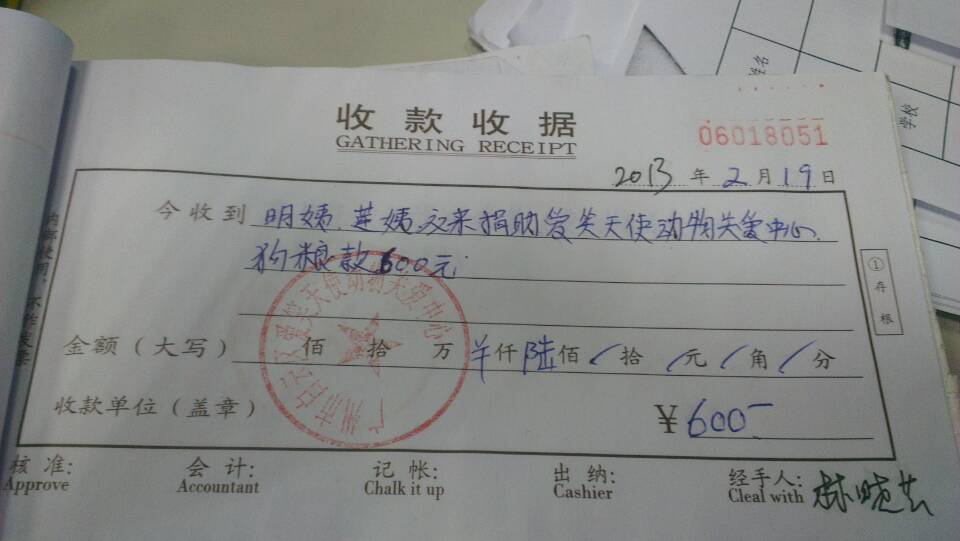 姓名
学校
收款收据
GATHERING RECEIPT
06018051
2013 年 2 月 19 日
今收到 明姨、莲姨、文来捐助爱笑天使动物关爱中心、
狗粮款600元
①存根
广州市白云区爱笑天使动物关爱中心
金额(大写) 佰 拾 万 羊仟陆佰 / 拾 / 元 / 角 / 分
收款单位(盖章) ¥600-
核 准: 会 计: 记 帐: 出 纳: 经手人:
Approve Accountant Chalk it up Cashier Cleal with 林晓